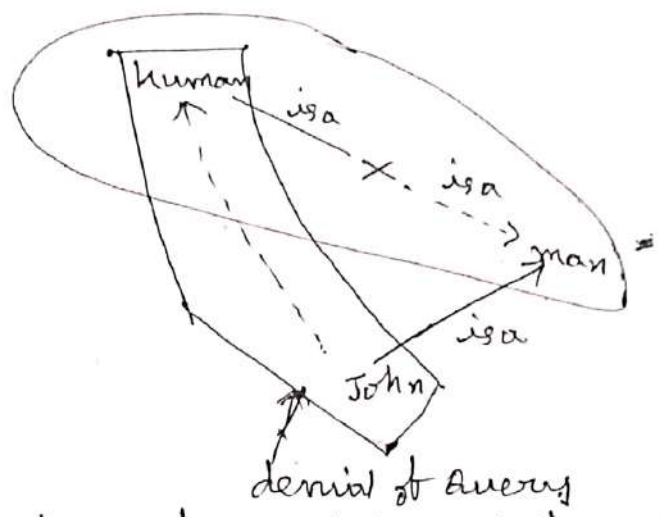 human
isa
isa
man
isa
John
denial of query